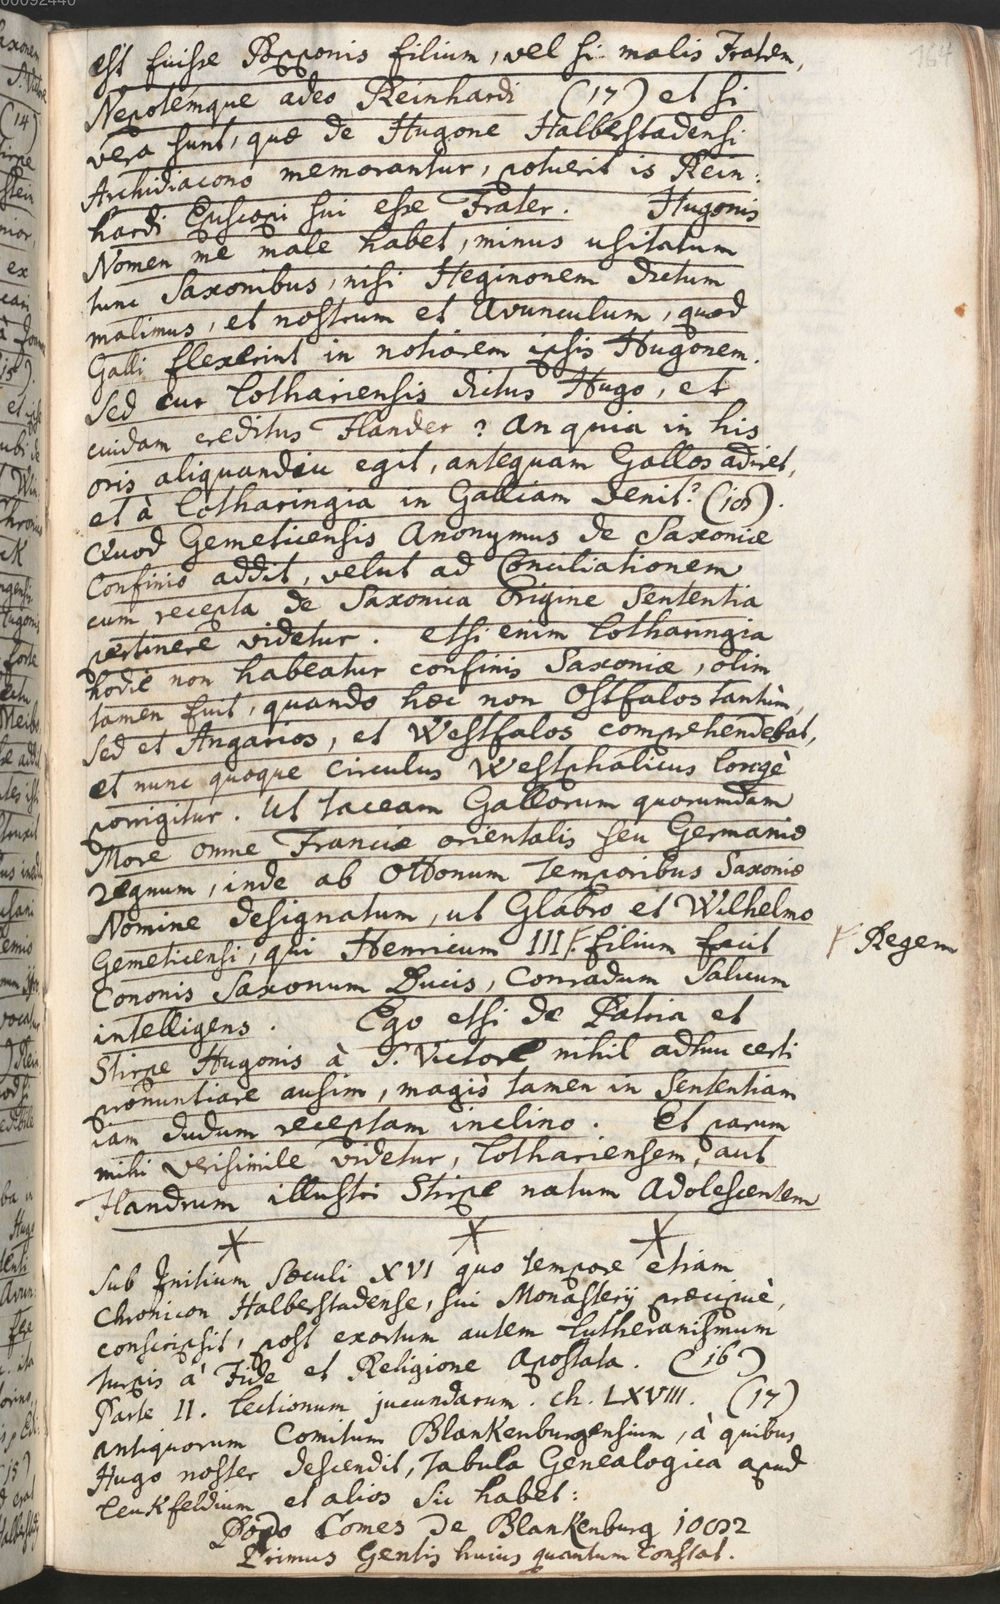 164
est fuisse Popponis filium, vel si malis Fratrem,
Nepotemque adeo Reinhardi (17) et si
vera sunt, quæ de Hugone Halberstadensi
Archidiacono memorantur, potuerit is Rein:
hardi Episcopi sui esse Frater. Hugonis
Nomen me male habet, minus usitatum
tunc Saxonibus, nisi Heginonem dictum
malimus, et nostrum et Avunculum, quod
Galli flexerint in notiorem ipsis Hugonem.
Sed cur Lothariensis dictus Hugo, et
cuidam creditus Flander? An quia in his
oris aliquandiu egit, antequam Gallos adiret,
et à Lotharingia in Galliam venit? (18).
Quod Gemeticensis Anonymus de Saxoniæ
Confinio addit, velut ad Conciliationem
cum recepta de Saxonica Origine Sententia
pertinere videtur. etsi enim Lotharingia
hodie non habeatur confinis Saxoniæ, olim
tamen fuit, quando hæc non Ostfalos tantùm,
Sed et Angarios, et Westfalos comprehendebat,
et nunc quoque Circulus Westphalicus longè
porrigitur. Ut taceam Gallorum quorumdam
More omne Franciæ orientalis seu Germaniæ
regnum, inde ab Ottonum temporibus Saxoniæ
Nomine designatum, ut Glabro et Wilhelmo
Gemeticensi, qui Henricum III. filium facit
Regem
Cononis Saxonum Ducis, Conradum Salicum
intelligens. Ego etsi de Patria et
Stirpe Hugonis à S. Victore nihil adhuc certi
pronuntiare ausim, magis tamen in Sententiam
iam dudum receptam inclino. Et parum
mihi verisimile videtur, Lothariensem, aut
Flandrum illustri Stirpe natum Adolescentem
Sub Initium Sæculi XVI quo tempore etiam
Chronicon Halberstadense, sui Monasterij præcipuè,
conscripsit, post exortum autem Lutheranismum
turpis à Fide et Religione Apostata. (16)
Parte II. Lectionum jucundarum. ch. LXVIII. (17)
antiquorum Comitum Blankenburgensium, à quibus
Hugo noster descendit, Tabula Genealogica apud
Leukfeldium et alios Sic habet:
Poppo Comes de Blankenburg
Primus Gentis huius quantum Constat.